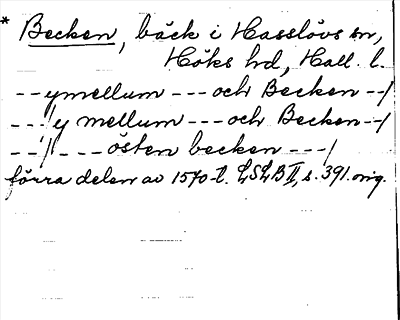 * Becken, bäck i Hasslövs sn,
Höks hd, Hall. l.
--ymellum --- och Becken --/
---/y mellum --- och Becken --/
--/--- östen becken ---/
förra delen av 1570-t. LSLB II, s. 391. orig.